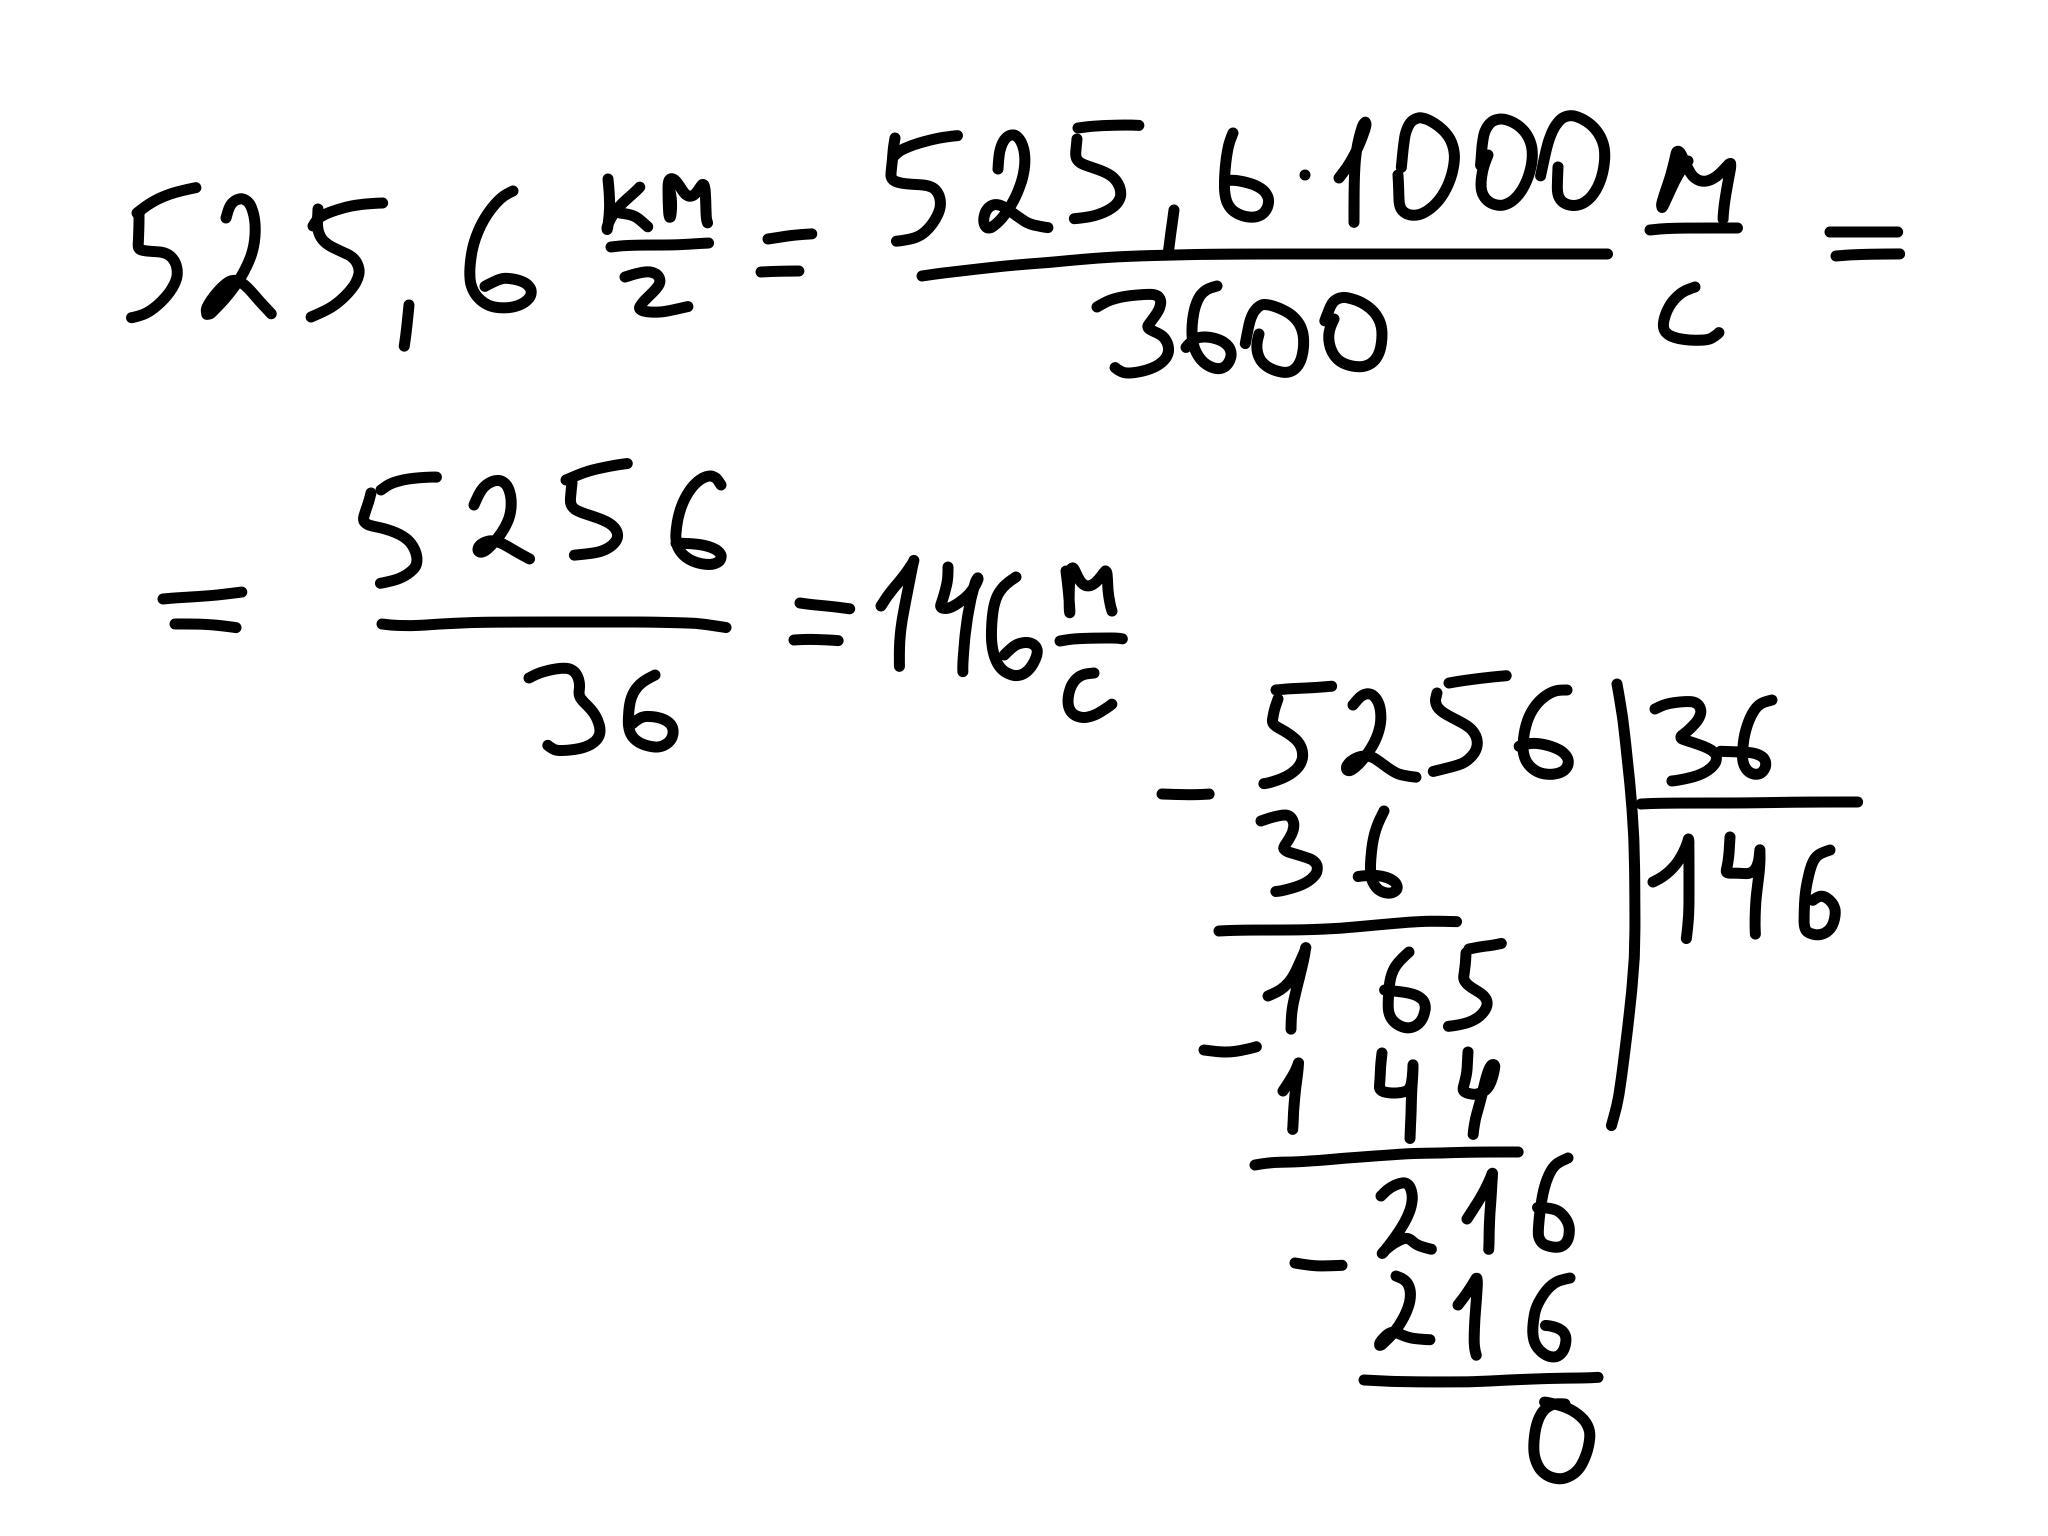 525,6 км/2 = 525,6·1000/3600 м/с =
= 5256/36 = 146 м/с
5256 | 36
- 36 | 146
1 65
- 1 44
216
- 216
0